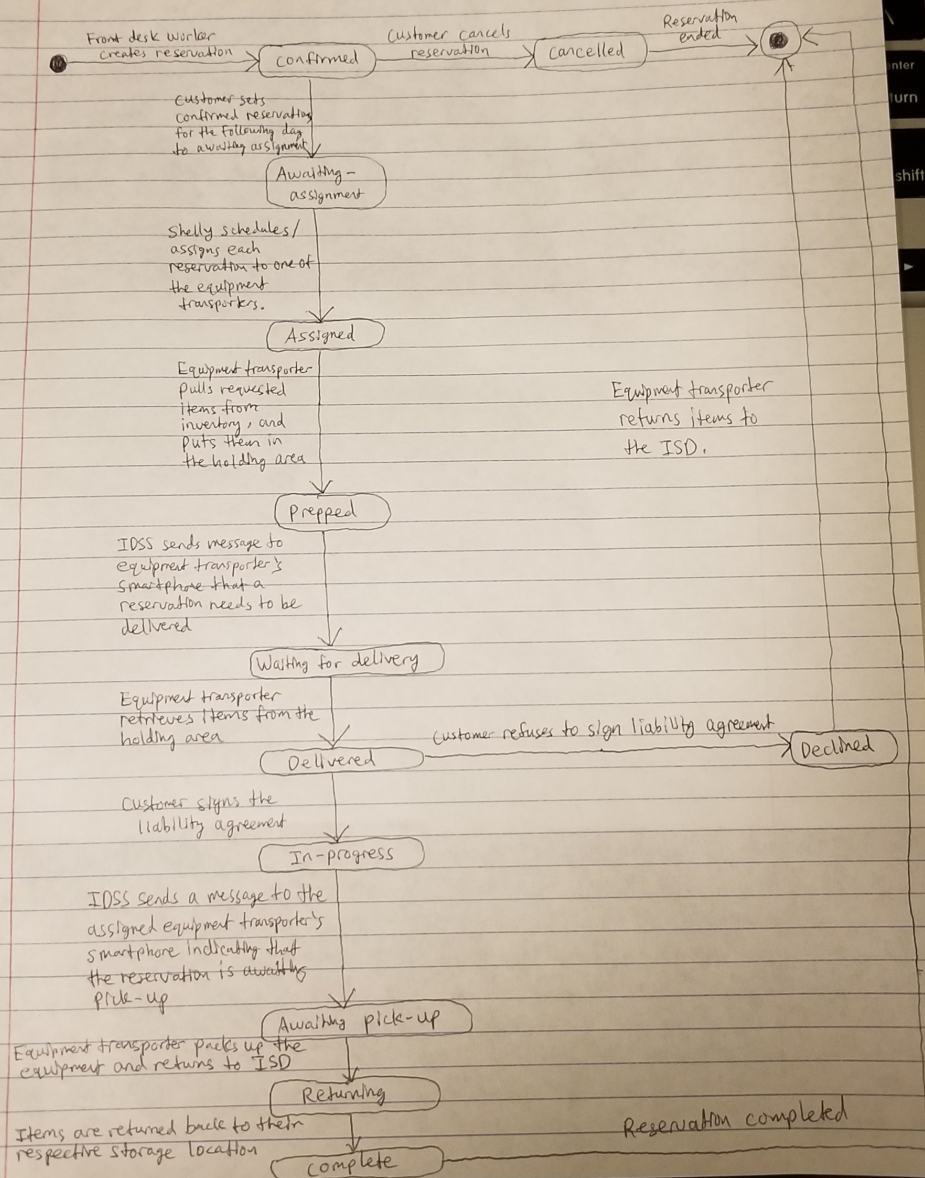 Front desk worker
creates reservation
Customer cancels
reservation
Reservation
ended
Confirmed
Cancelled
Customer sets
confirmed reservation
for the following day
to awaiting assignment
Awaiting-
assignment
Shelly schedules/
assigns each
reservation to one of
the equipment
transporters.
Assigned
Equipment transporter
pulls requested
items from
inventory, and
puts them in
the holding area
Equipment transporter
returns items to
the ISD.
Prepped
IDSS sends message to
equipment transporter's
smartphone that a
reservation needs to be
delivered
Waiting for delivery
Equipment transporter
retrieves items from the
holding area
Customer refuses to sign liability agreement
Delivered
Declined
Customer signs the
liability agreement
In-progress
IDSS sends a message to the
assigned equipment transporter's
smartphone indicating that
the reservation is awaiting
pick-up
Awaiting pick-up
Equipment transporter packs up the
equipment and returns to ISD
Returning
Items are returned back to their
respective storage location
Reservation completed
Complete
nter
urn
shift